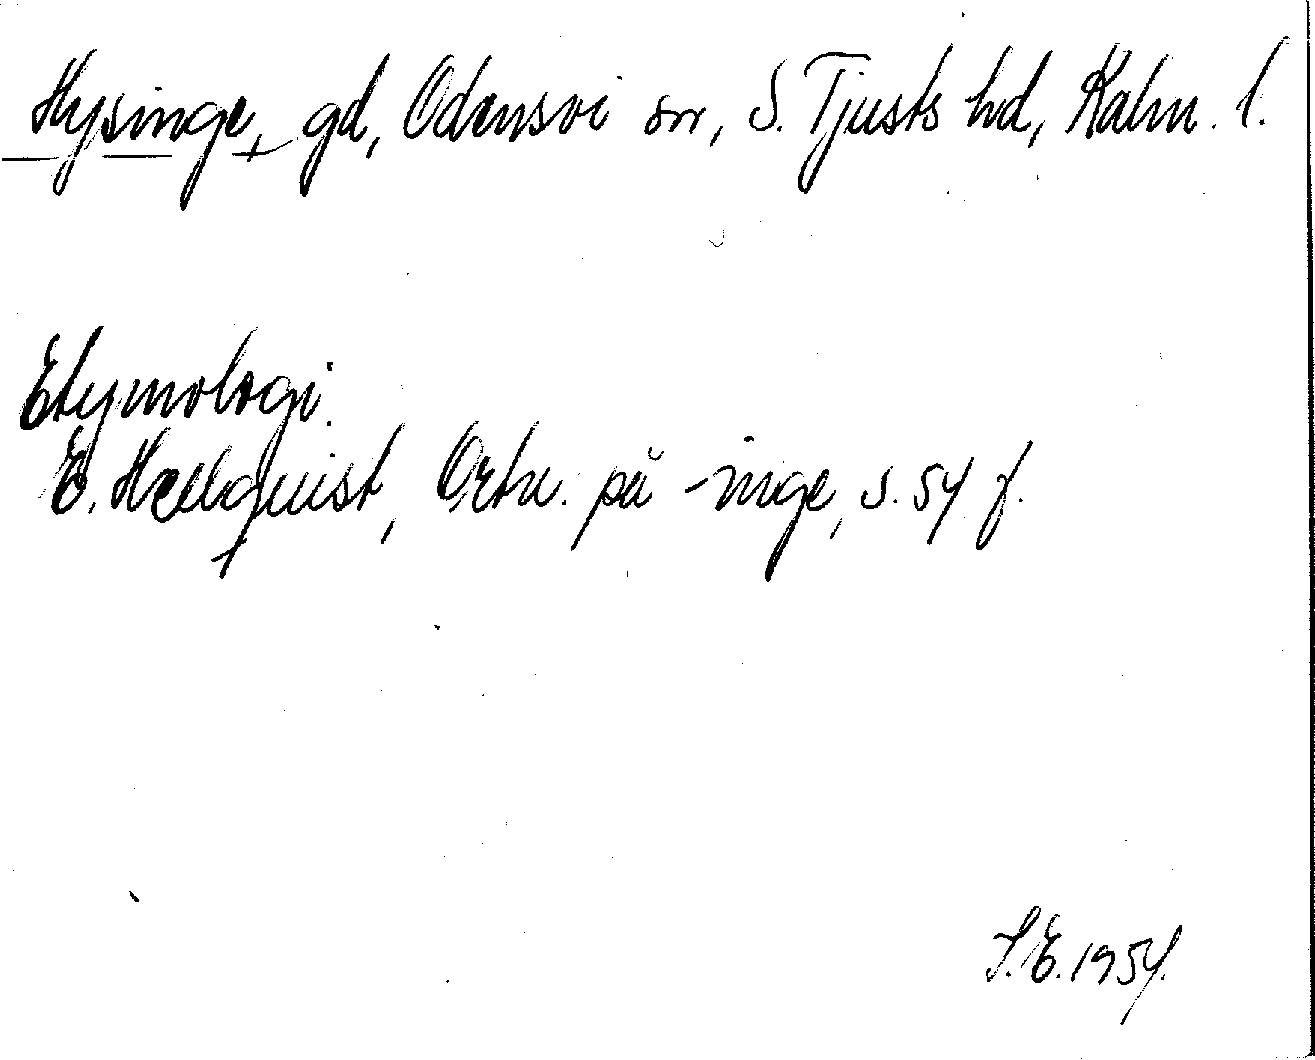 Hysinge, gd, Odensvi sn, S. Tjusts hd, Kalm. l.
Etymologi.
E. Hellquist, Ortn. på -inge, s. 54 f.
S.E. 1954.